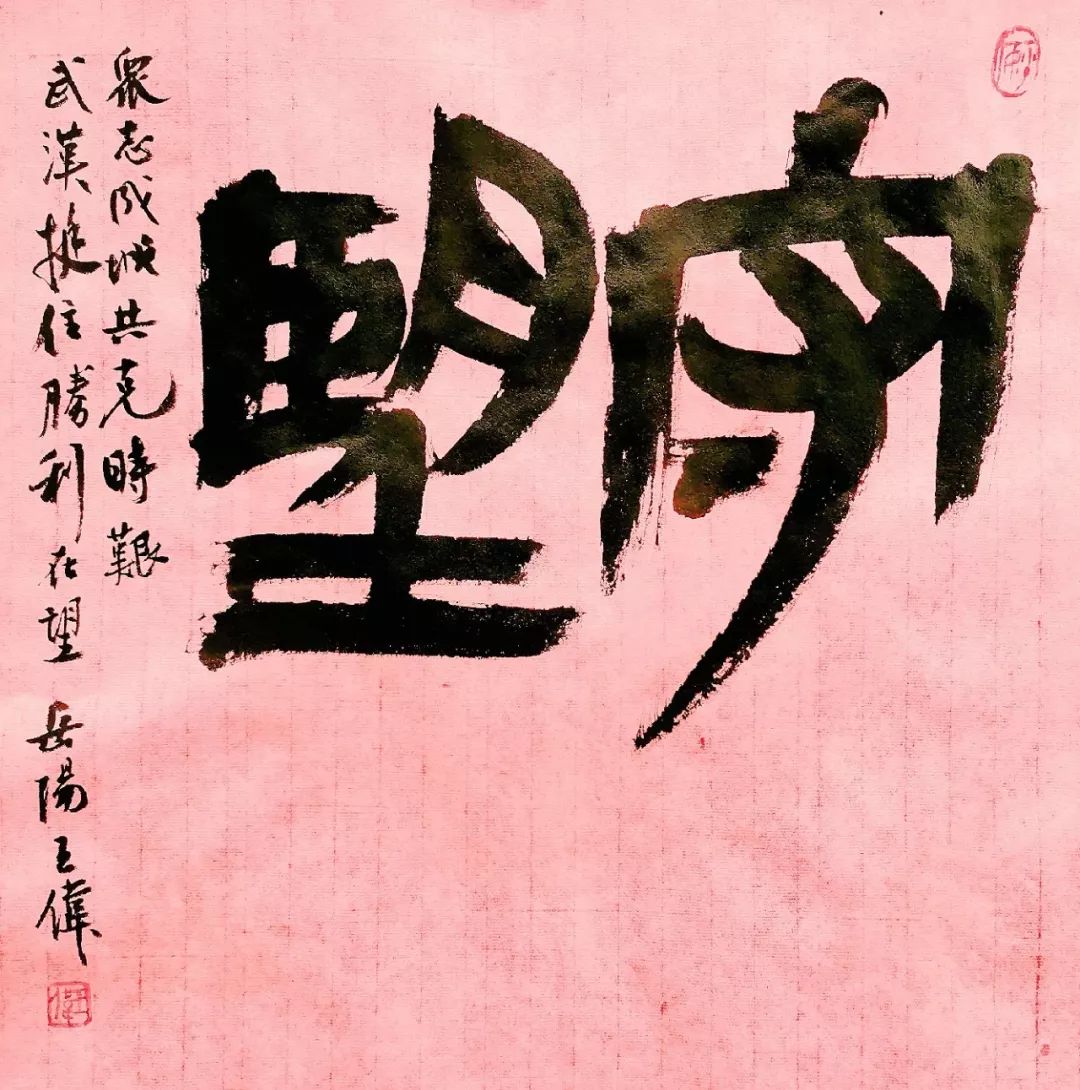 守望
衆志成城共克時艱
武漢挺住勝利在望 岳陽王偉